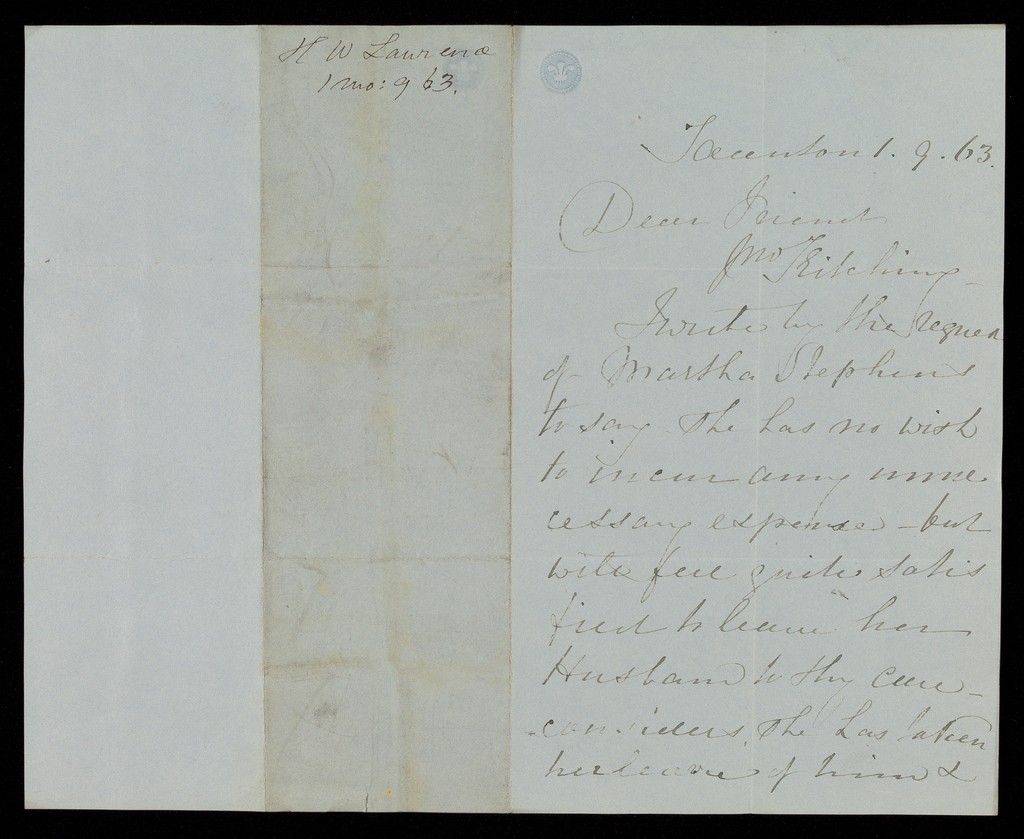 H W Lawrence
1 mo: 9 63.
Taunton 1. 9. 63.
Dear Friend
Jno Kitching
I write by the reques
of Martha Stephens
to say She has no wish
to incur any unne
cessary expense - but
will feel quite satis
fied to leave her
Husband to thy care -
- considers She has taken
her leave of him &